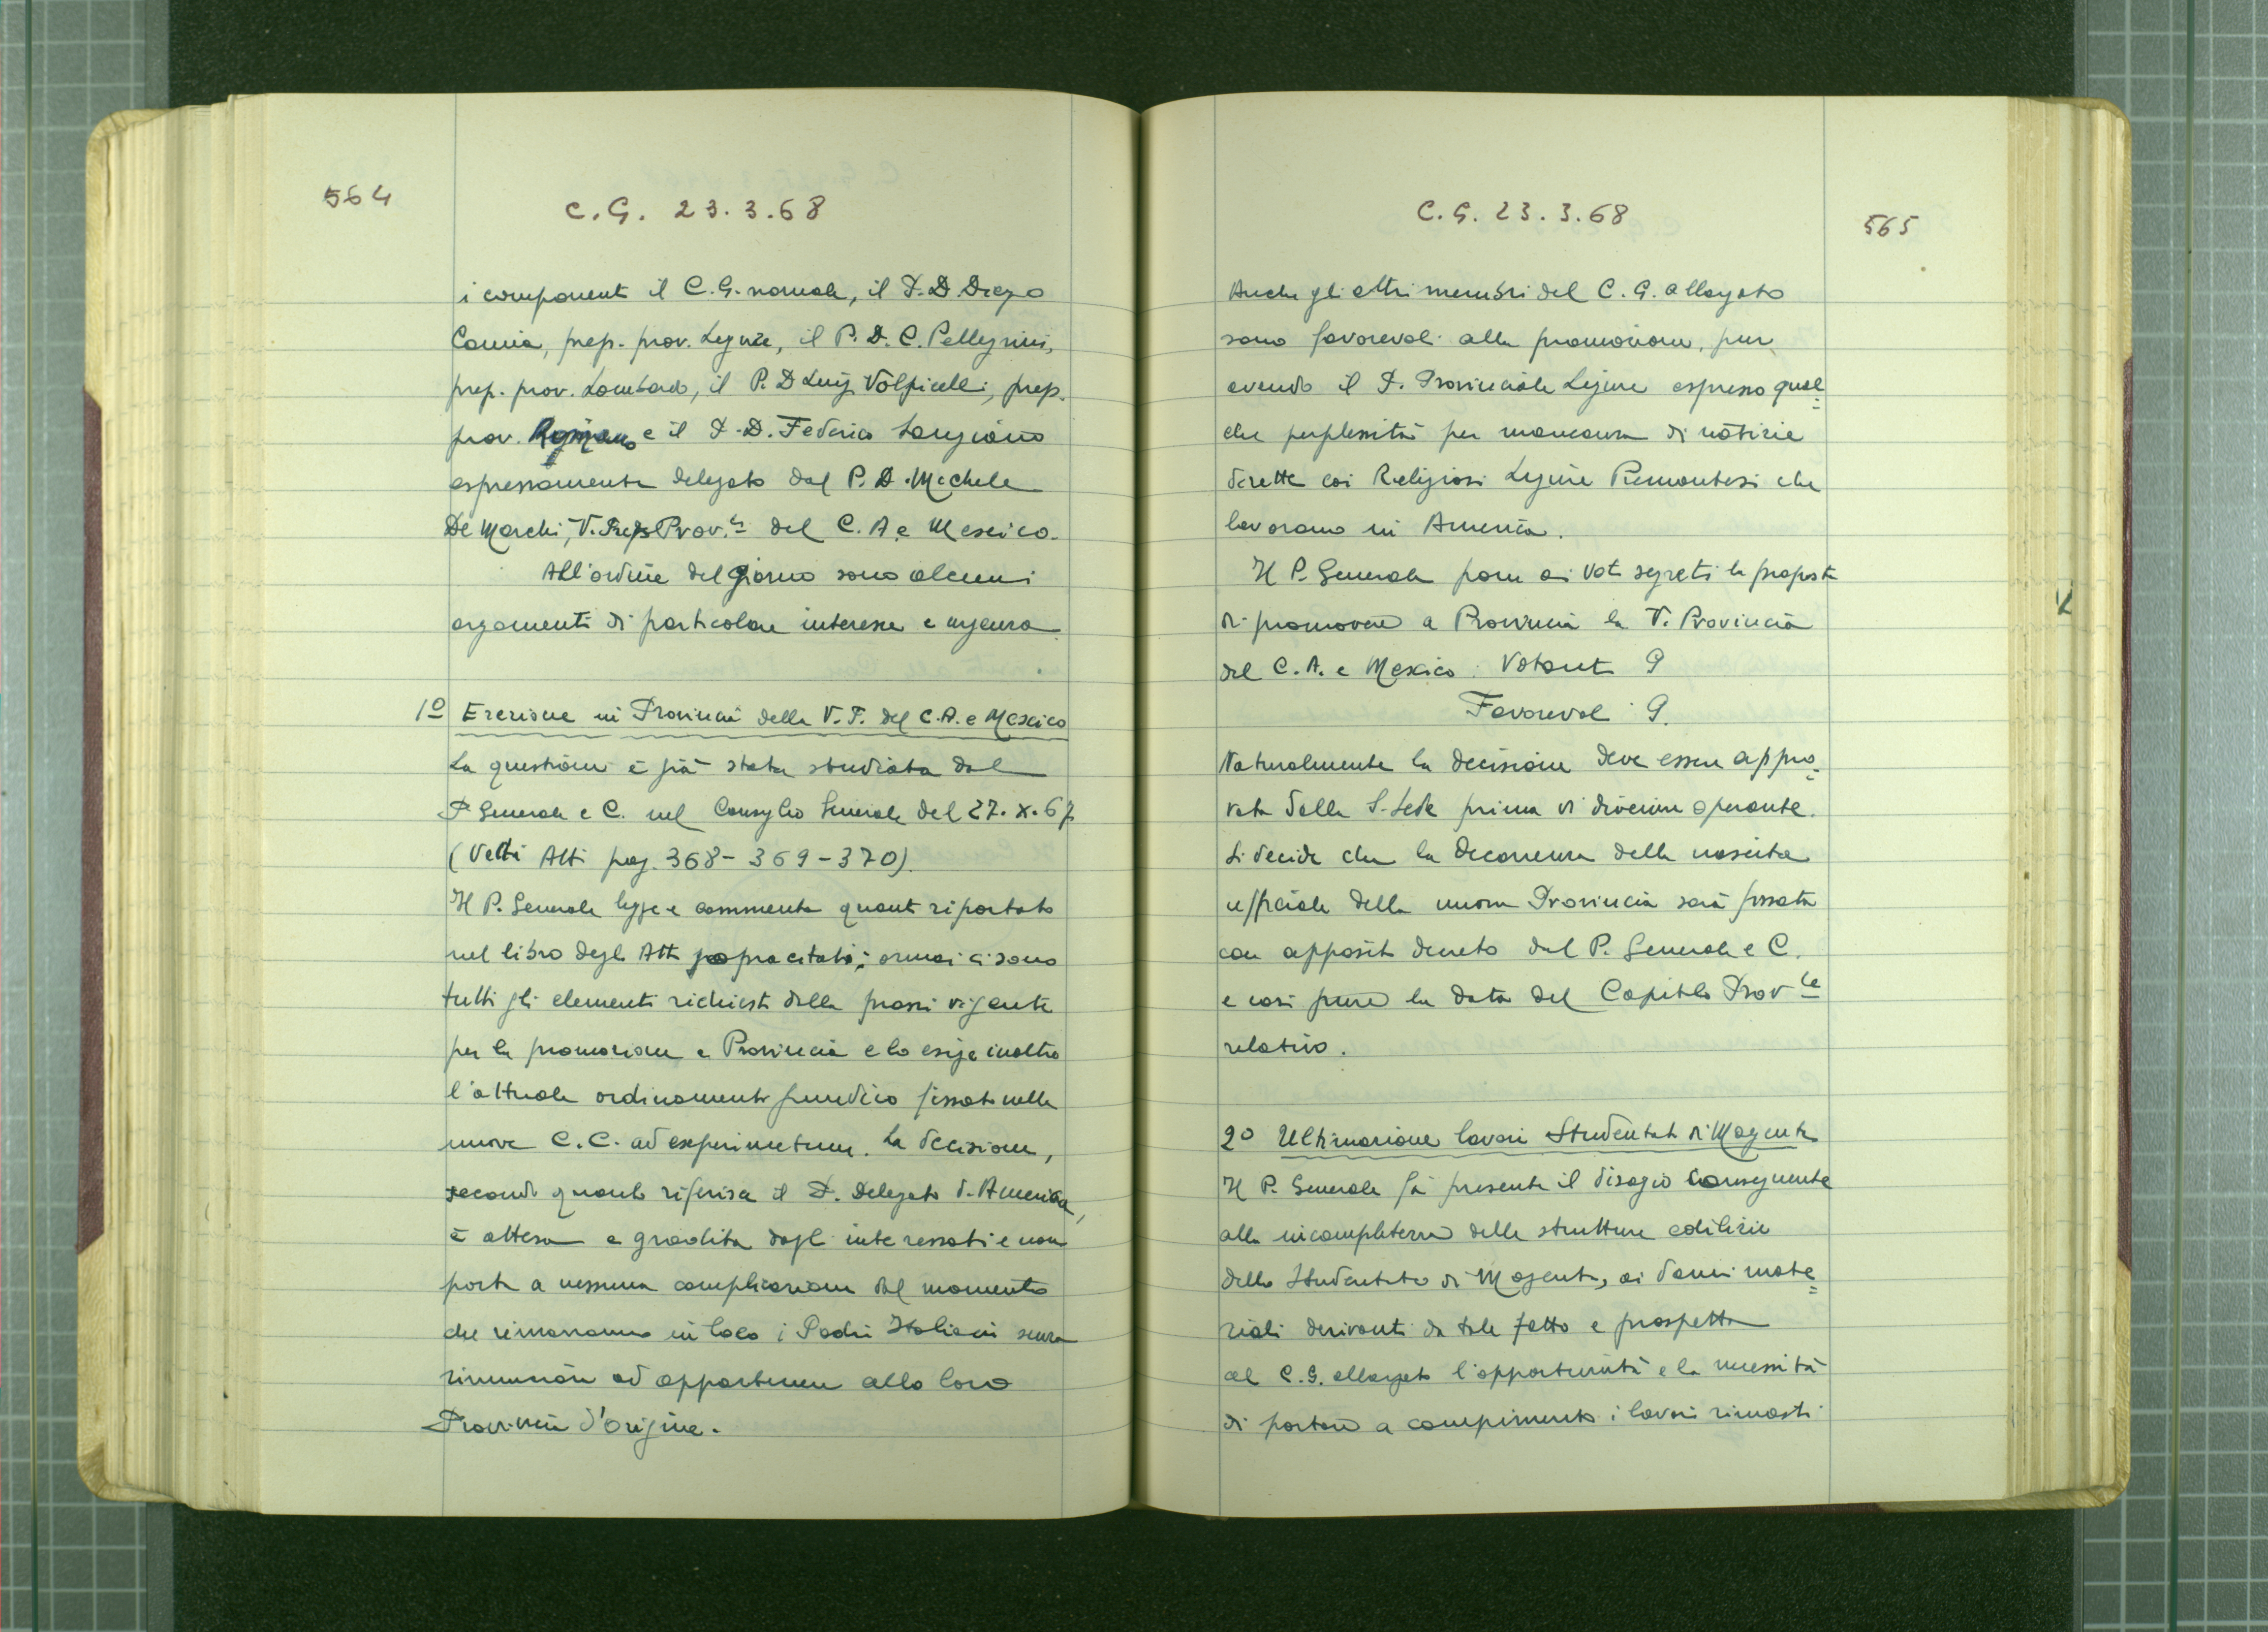 564
C.G. 23.3.68
i componenti il C.G. normale, il P. D. Diego
Camia, prep. prov. Ligure, il P. D. C. Pellegrini,
prep. prov. Lombardo, il P. D Luigi Volpicelli, prep.
prov. Romano e il P. D. Federico Sangiano
espressamente delegato dal P. D. Michele
De Marchi, V. Prep Prov.le del C. A. e Messico.
All'ordine del giorno sono alcuni
argomenti di particolare interesse e urgenza.
1º Erezione in Provincia della V. P. del C.A. e Messico
La questione è già stata studiata dal
P. Generale e C. nel Consiglio Generale del 27.X.67
(Vedi Atti pag. 368-369-370).
Il P. Generale legge e commenta quanto riportato
nel libro degli Atti sopracitati; ormai ci sono
tutti gli elementi richiesti dalla prassi vigente
per la promozione a Provincia e lo esige inoltre
l'attuale ordinamento giuridico fissato nelle
nuove C.C. ad experimetum. La decisione,
secondo quanto riferisce il P. Delegato d'America,
è attesa e gradita dagli interessati e non
porta a nessuna complicazione dal momento
che rimarranno in loco i Padri Italiani senza
rinunciare ad appartenere alla loro
Provincia d'origine.
C.G. 23.3.68
565
Anche gli altri membri del C. G. allargato
sono favorevoli alla promozione, pur
avendo il P. Provinciale Ligure espresso qual=
che perplessità per mancanza di notizie
dirette coi Religiosi Liguri Piemontesi che
lavorano in America.
Il P. Generale pone ai voti segreti la proposta
di promovere a Provincia la V. Provincia
del C. A. e Mexico. Votanti 9
Favorevoli 9.
Naturalmente la decisione deve essere appro=
vata dalla S. Sede prima di divenire operante.
Si decide che la decorrenza della nascita
ufficiale della nuova Provincia sarà fissata
con apposito decreto del P. Generale e C.
e così pure la data del Capitolo Prov le
relativo.
2º Ultimazione lavori Studentato di Magenta
Il P. Generale fa presente il disagio conseguente
alla incompletezza delle strutture edilizie
dello Studentato di Magenta, ai danni mate=
riali derivanti da tale fatto e prospetta
al C.G. allargato l'opportunità e la necessità
di portare a compimento i lavori rimasti